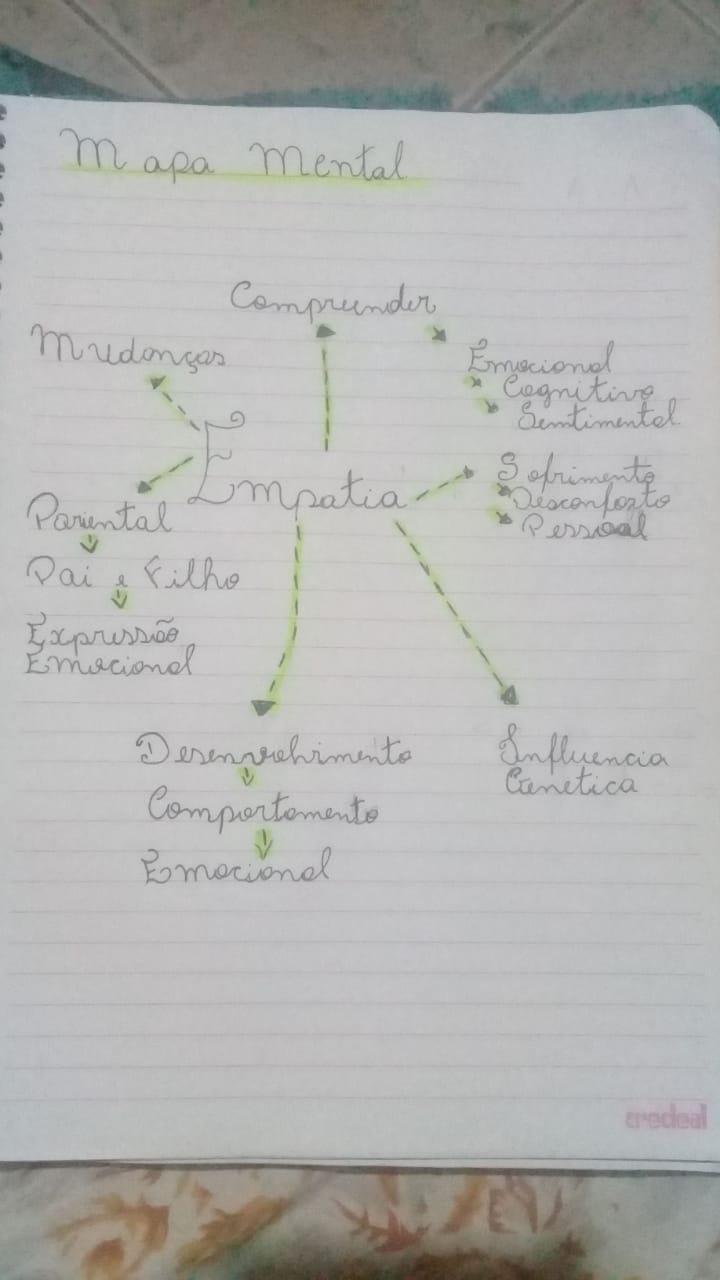 Mapa Mental
Compreender
Mudanças
Emocional
Cognitivo
Sentimental
Empatia
Sofrimento
Desconforto
Pessoal
Pariental
Pai e Filho
Expressão
Emocional
Desenvolvimento
Comportamento
Emocional
Influencia
Genetica
credeal